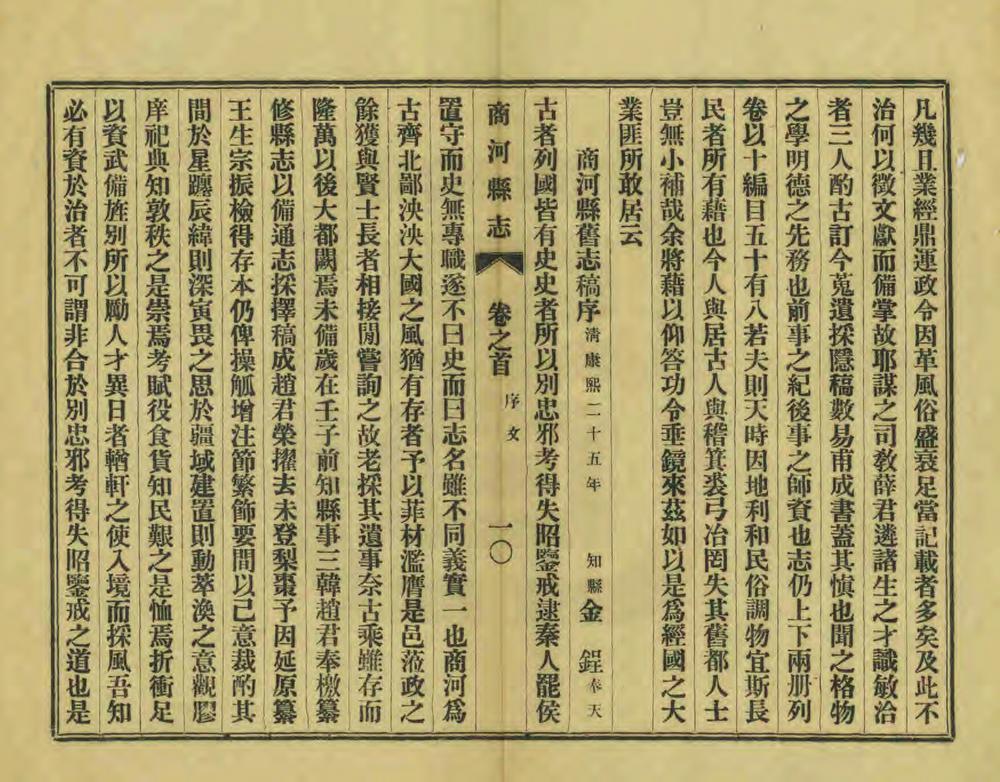 凡幾且業經鼎運政令因革風俗盛衰足當記載者多矣及此不
治何以徵文獻而備掌故耶謀之司敎薛君遴諸生之才識敏治
者三人酌古訂今蒐遺採隱稿數易甫成書蓋其愼也聞之格物
之學明德之先務也前事之紀後事之師資也志仍上下兩册列
卷以十編目五十有八若夫則天時因地利和民俗調物宜斯長
民者所有藉也今人與居古人與稽箕裘弓冶罔失其舊都人士
豈無小補哉余將藉以仰答功令垂鏡來茲如以是爲經國之大
業匪所敢居云
商河縣舊志稿序 淸康熙二十五年 知縣 金鋥 奉天
古者列國皆有史史者所以別忠邪考得失昭鑒戒逮秦人罷侯
商河縣志 卷之首 序文 一〇
置守而史無專職遂不曰史而曰志名雖不同義實一也商河爲
古齊北鄙泱泱大國之風猶有存者予以菲材濫膺是邑蒞政之
餘獲與賢士長者相接閒嘗詢之故老採其遺事奈古乘雖存而
隆萬以後大都闕焉未備歲在壬子前知縣事三韓趙君奉檄纂
修縣志以備通志採擇稿成趙君榮擢去未登梨棗予因延原纂
王生宗振檢得存本仍俾操觚增注節繁飾要間以己意裁酌其
間於星躔辰緯則深寅畏之思於疆域建置則動萃渙之意觀膠
庠祀典知敦秩之是崇焉考賦役食貨知民艱之是恤焉折衝足
以資武備旌別所以勵人才異日者輶軒之使入境而採風吾知
必有資於治者不可謂非合於別忠邪考得失昭鑒戒之道也是